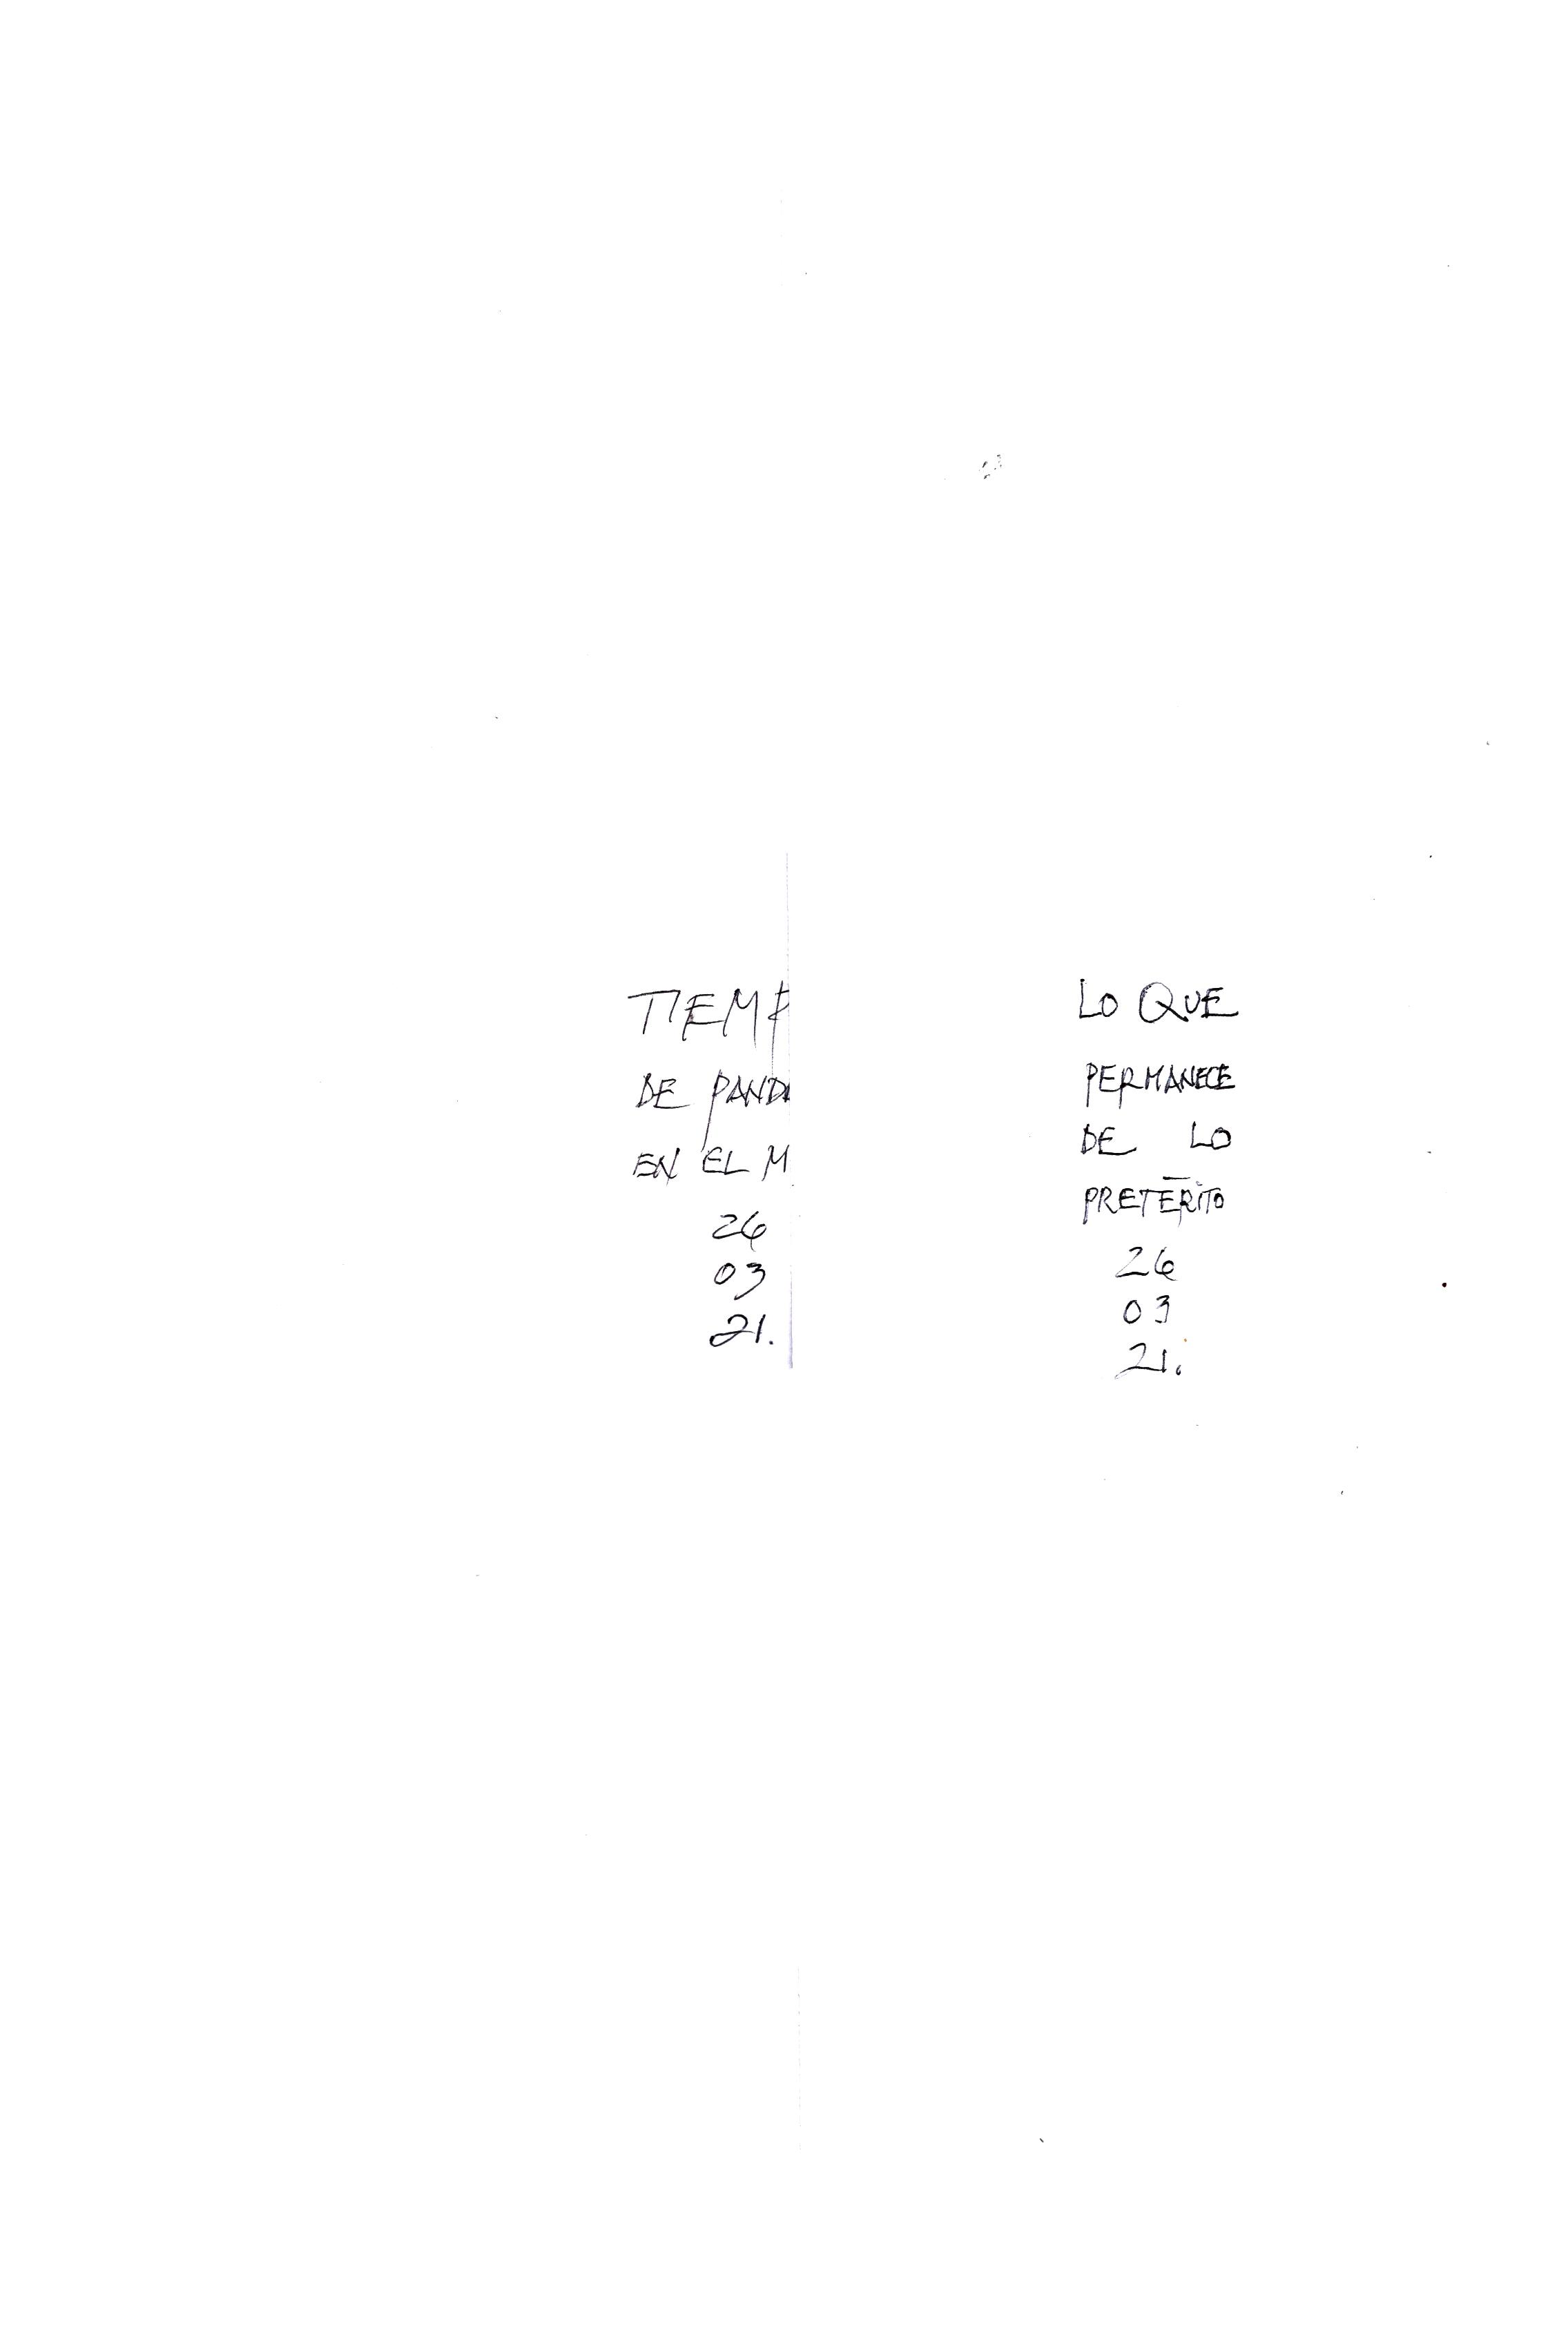 TIEMP
DE PAND
EN EL M
26
03
21.
LO QUE
PERMANECE
DE LO
PRETÉRITO
26
03
21.